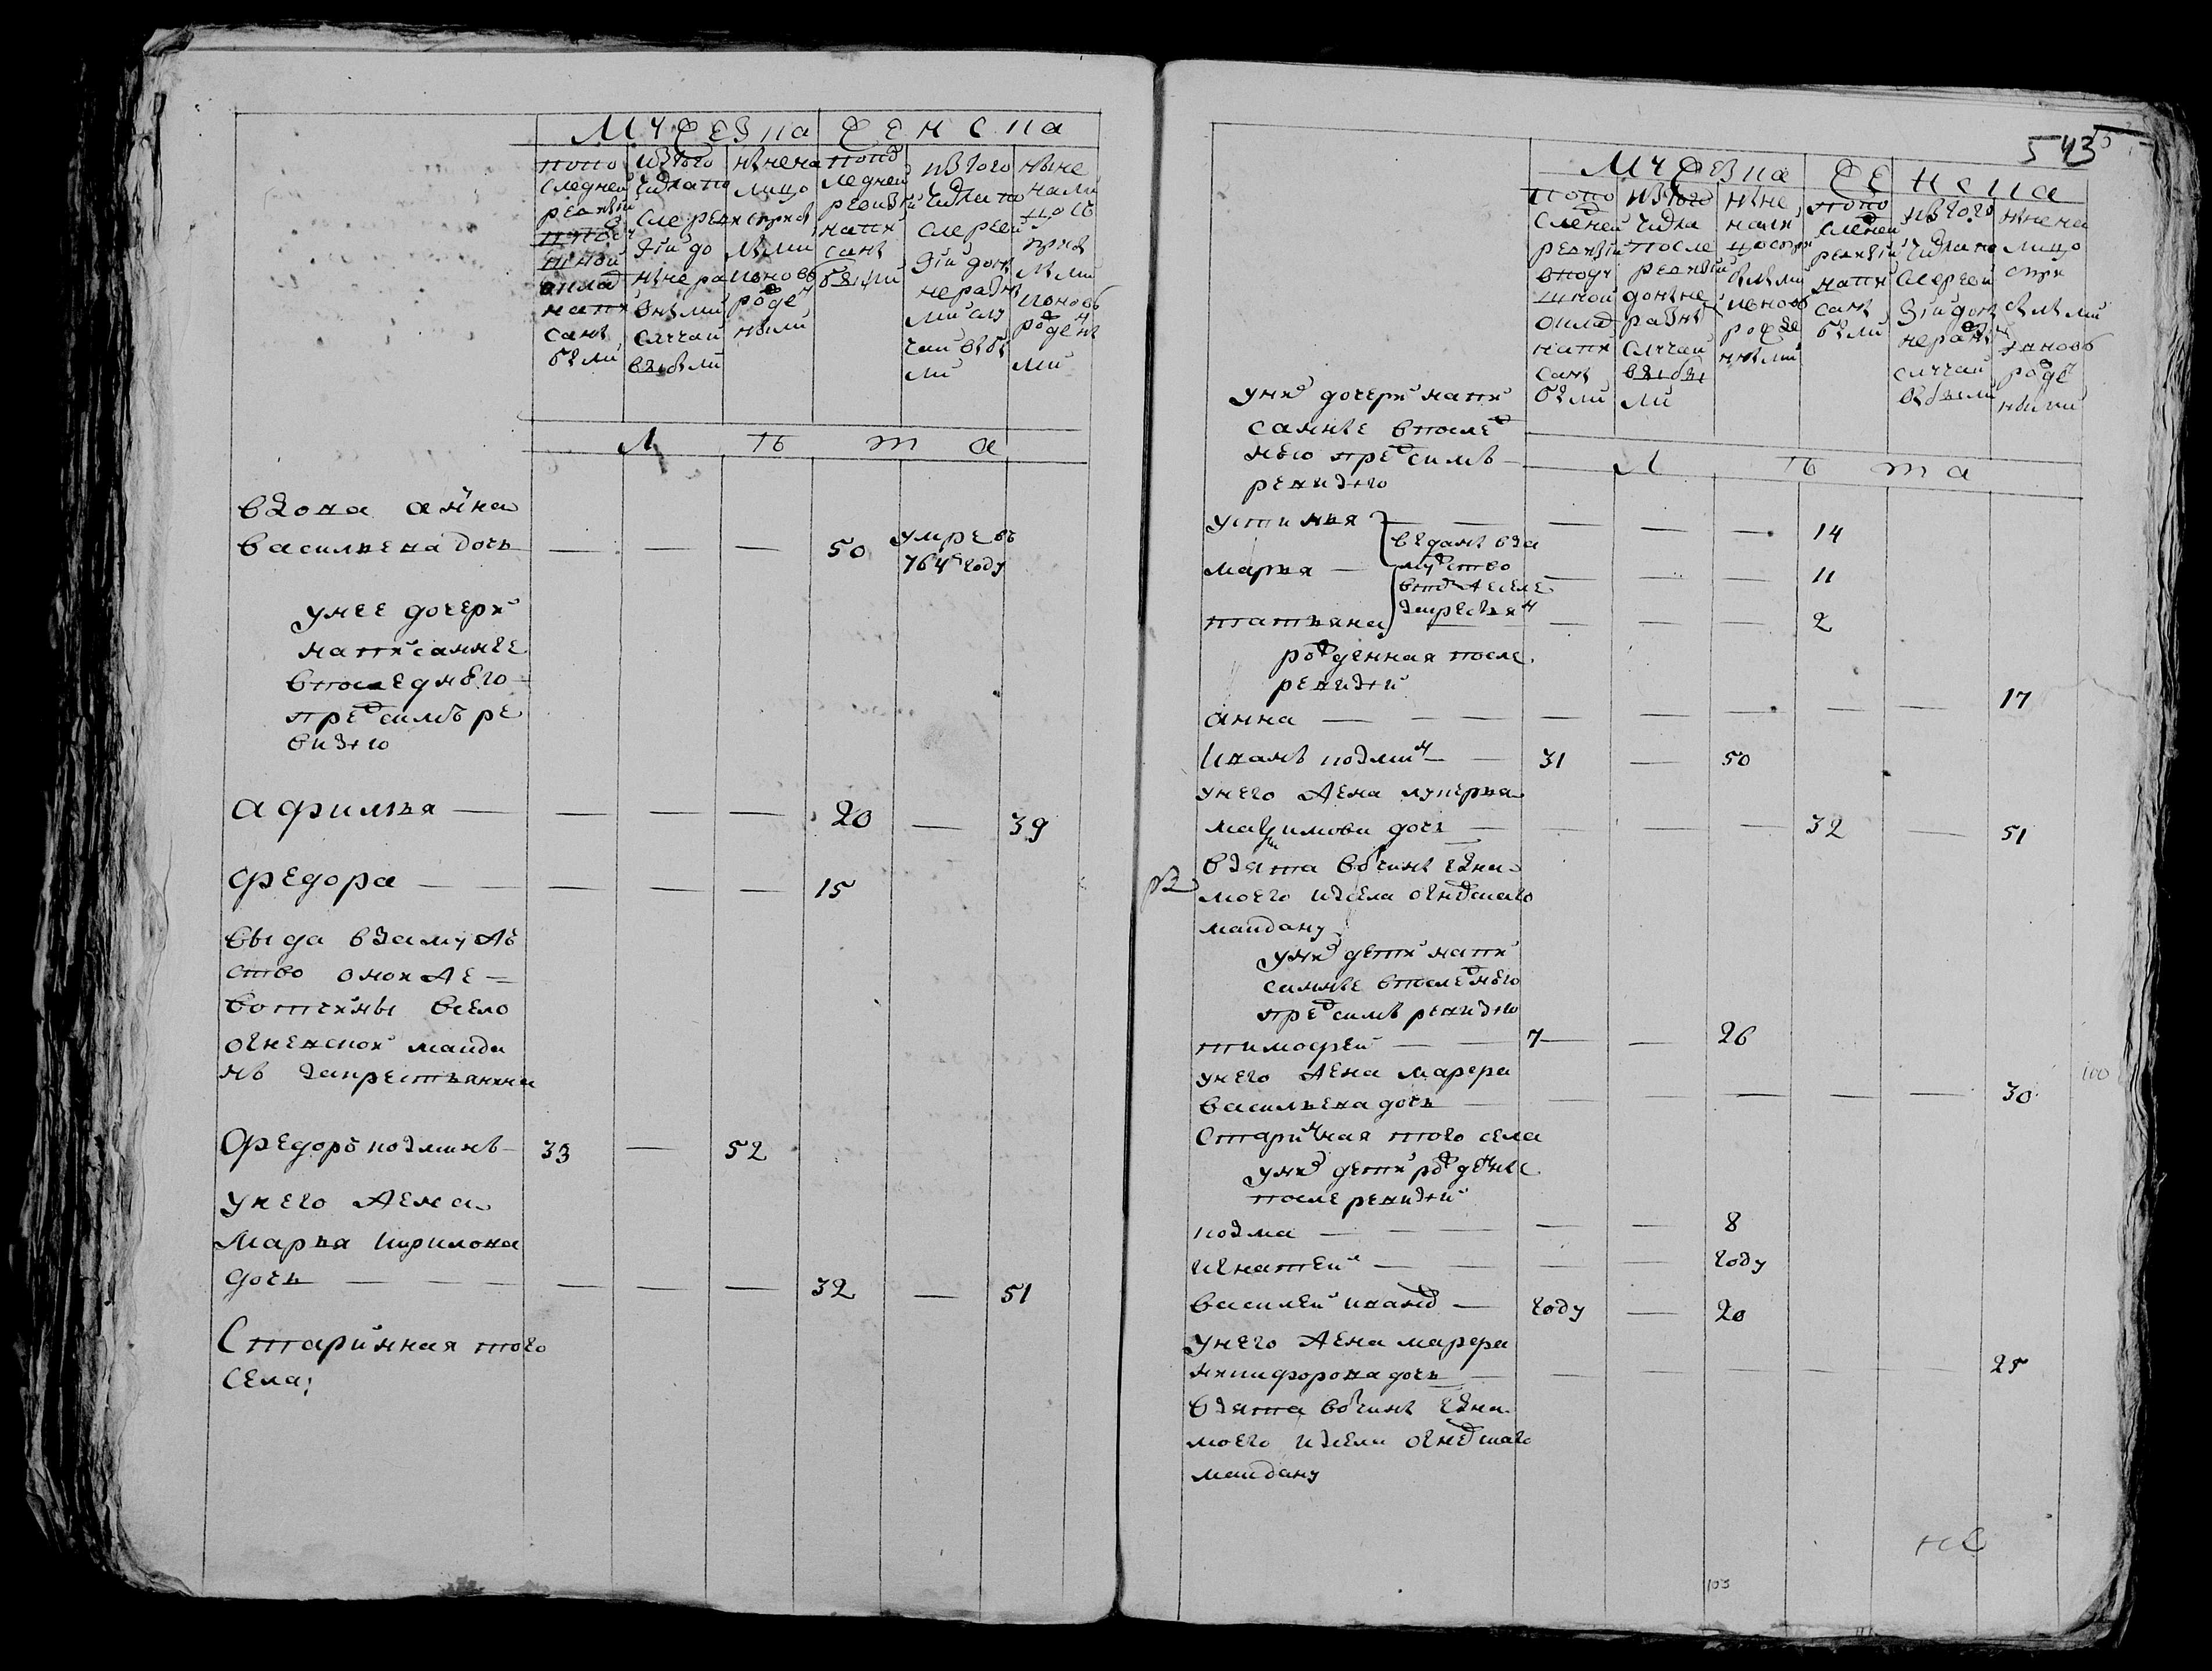 Мужеска Женска
попо следней ревизии в подушной оклад написаны были
из того числа после ревизии до ныне разными случаи выбыли
ныне на лицо с прибылыми и вновь рожденными
по последней ревизии написаны были
из того числа по сле ревизии до ныне разными случаи выбыли
ныне на лицо с прибылыми и вновь рожденными
Л ѣ т а
вдова анна
васильева дочь — — — 50 умре въ
764м году
у нее дочери
написанные
в последнюю
пред симъ ре
визию
афимья — — — — 20 — 39
федора — — — — 15
выда в замужъ
ство оной же
вотчины в село
огневской майда
нъ за крестьянина
федоръ козминъ 33 — 52
у него жена
марья кирилова
дочь — — — 32 — 51
Старинная того
села;
543
Мужеска Женска
попо следней ревизии в подушной оклад написаны были
из того числа после ревизии до ныне разны случаи выбыли
ныне на лицо с прибылыми и вновь рожденными
по последней ревизии написаны были
из того числа по сле ревизии до ныне разны случаи выбыли
ныне на лицо с прибылыми и вновь рожденными
Л ѣ т а
у них дочери напи
санные в послед
нюю пред симъ
ревизию
устинья — — — — 14
выданы в за
марья — мужство — — — 11
в том же селе
за крестьян
татьяна — — — 2
рожденная после
ревизии
анна — — — — — — — 17
Иванъ козмин — 31 — 50
у него жена лукерья
максимова дочь — — — — 32 — 51
взята в вотчине ее
моего из села огневскаго
майдану
у них дети напи
санные в последнюю
пред симъ ревизию
тимофей — — 7 — 26
у него жена марфа
васильева дочь — — — — — — 30
Старинная того села
у них дети рожденные
после ревизии
козма — — — — 8
игнатей — — — — году
василей иванов — году — 20
у него жена марфа
никифорова дочь — — — — — — 25
взята в вотчине ее
моего из села огневскаго
майдану
100
103